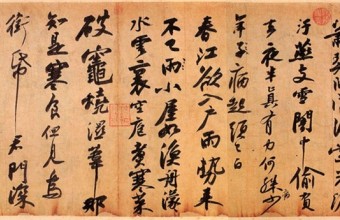 蕭瑟臥聞海棠花
汙燕支雪闇中偷負
去夜半真有力何殊少
年子病起頭已白
春江欲入戶雨勢來
不已雨小屋如漁舟濛
水雲裏空庖煮寒菜
破竈燒濕葦那
知是寒食但見烏
銜帋 君門深